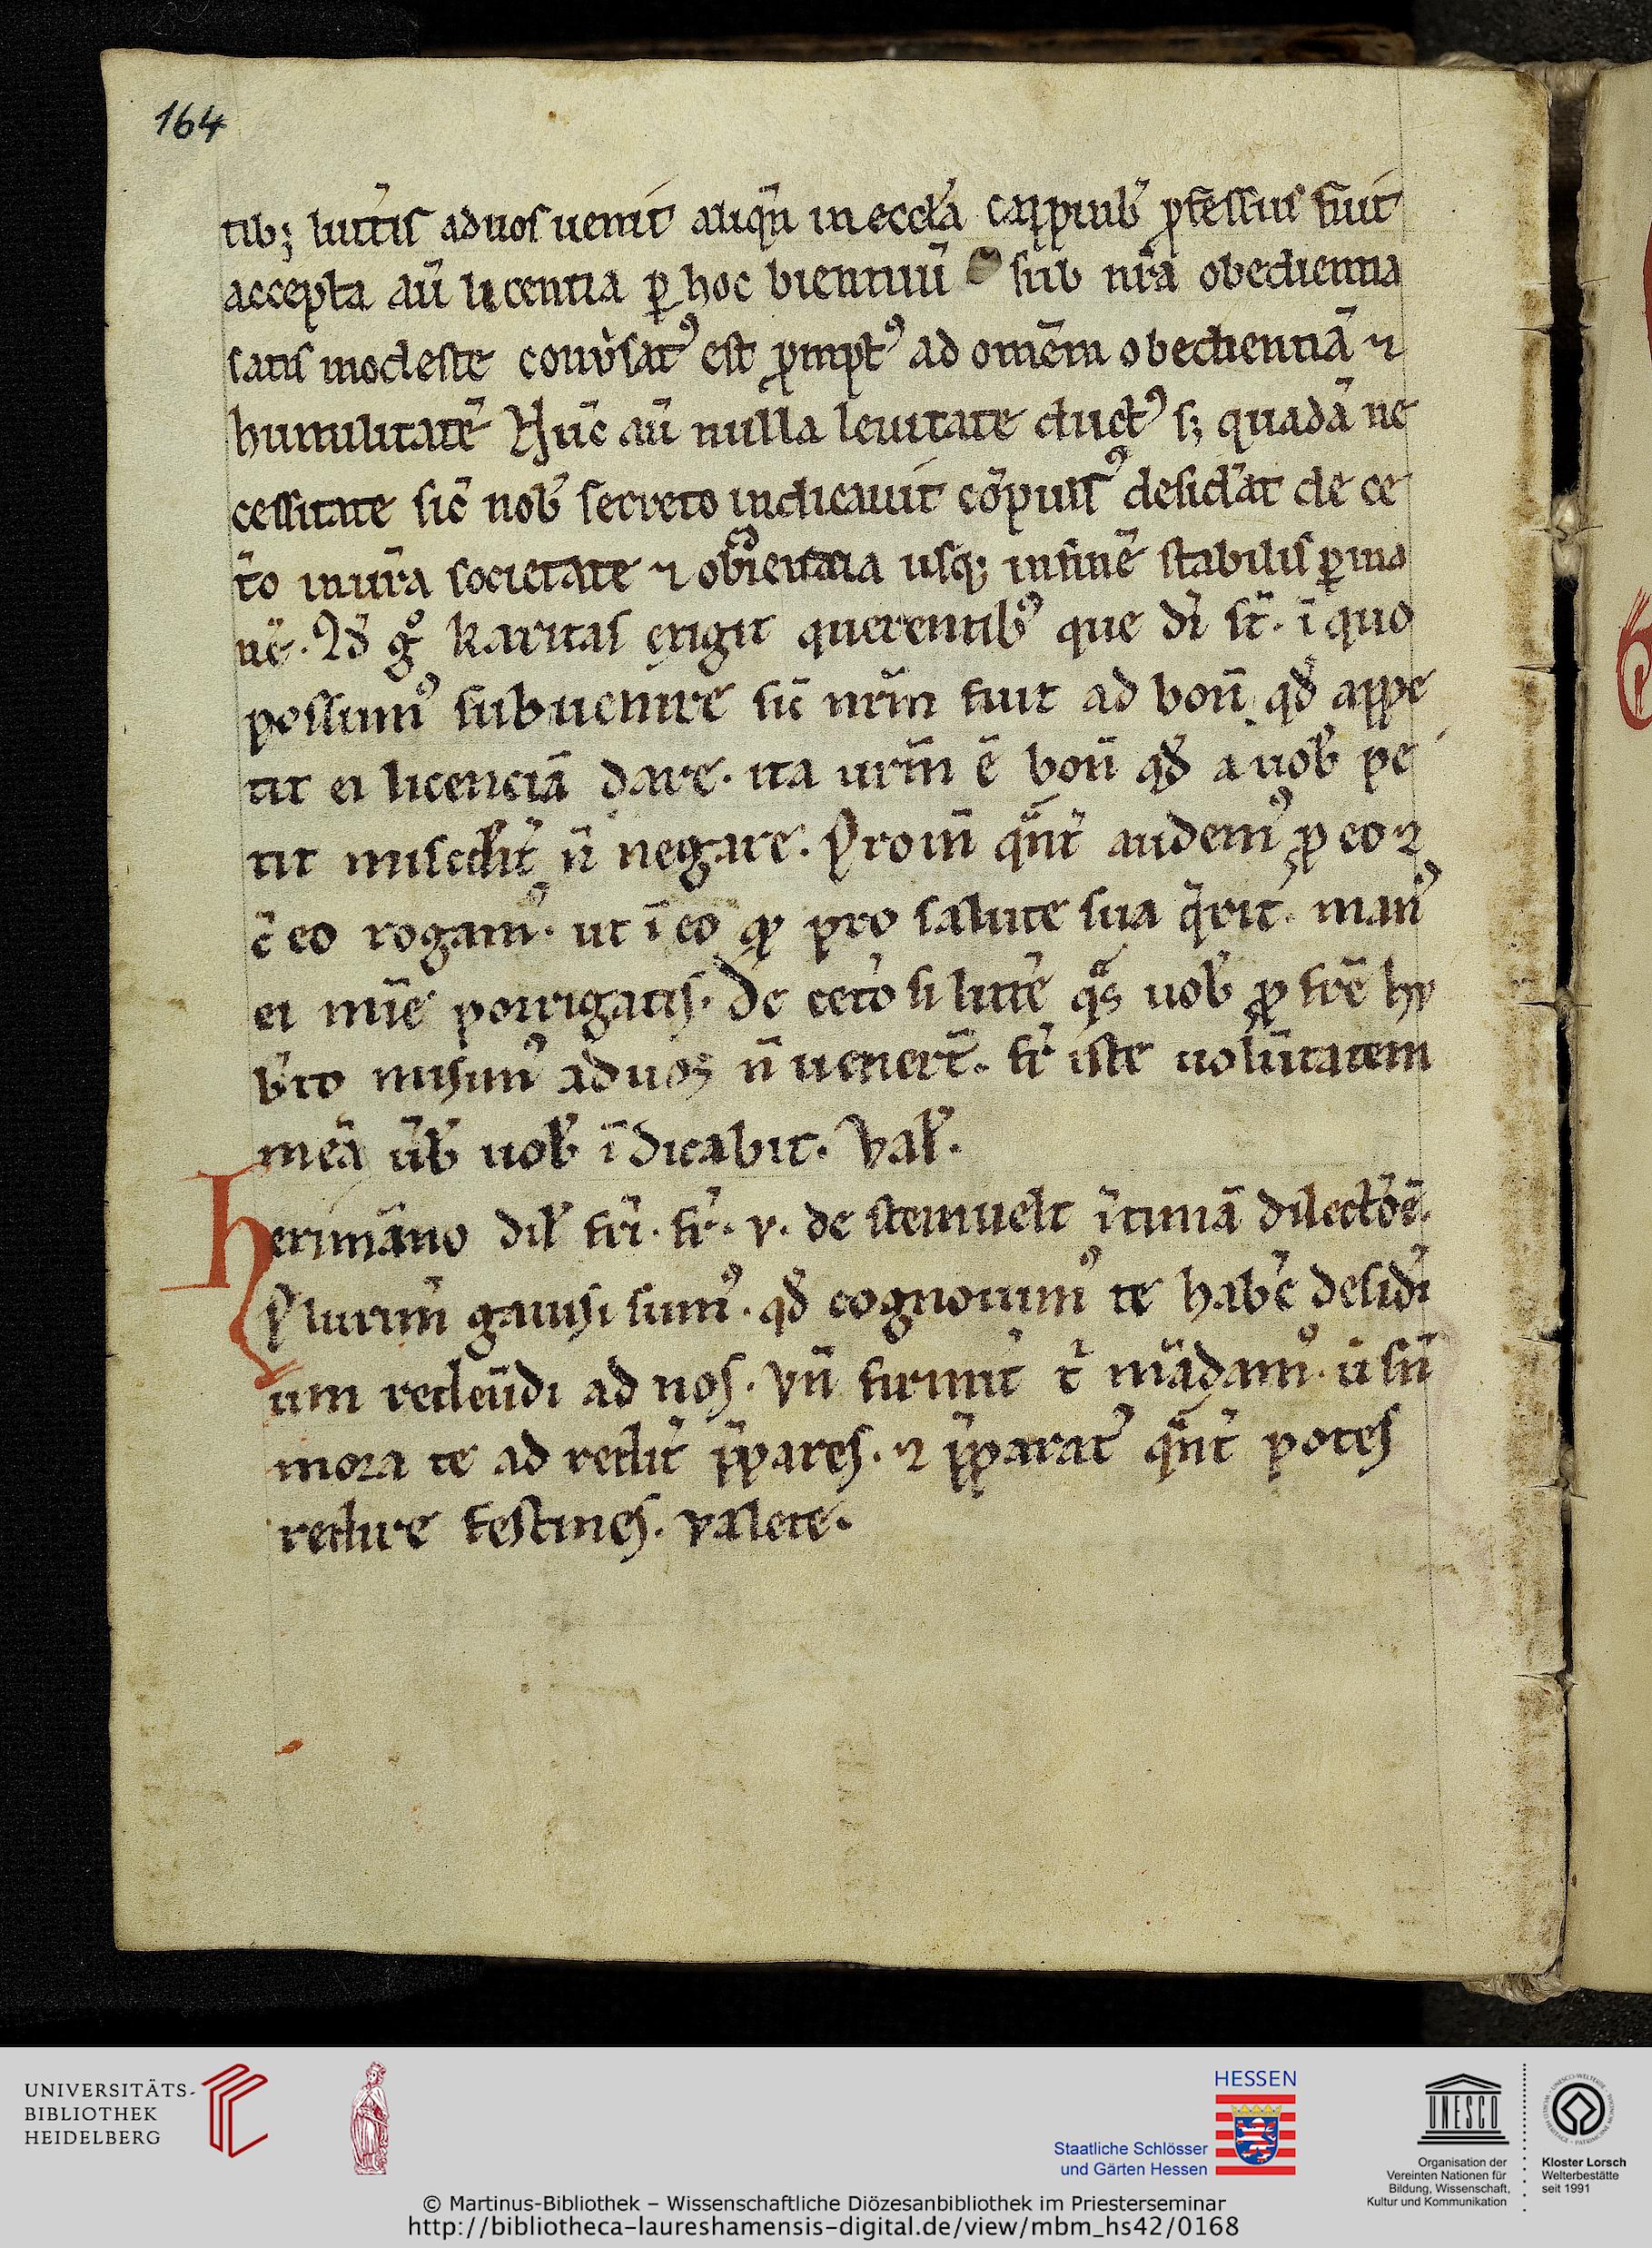 164
tib; litt̄is ad uos uenit aliqn̄ in eccl̄a cappinb̄ ꝓfessus fuit
accepta aū licentia ꝑ hoc bienniū sub nr̄a obedientia
satis modeste conūsatꝰ est ꝓmptꝰ ad omēm obedientiā ⁊
humilitatē Nūc aū nulla leuitate ductꝰ s; quadā ne
cessitate sic̄ nob̄ secreto indicauit cōpulsꝰ desid̄at de ce
t̄o in ur̄a societate ⁊ usq; in finē stabilis ꝑma
nē. Qd̄ gͦ karitas exigit querentibꝰ que dī st̄. ī quo
possumꝰ subuenire sic̄ nr̄m fuit ad bon̄ qd̄ appe
tit ei licenciā dare. ita ur̄m ē bon̄ qd̄ a uob̄ pe
tit n̄ negare. Proin̄ qn̄t audemꝰ ꝓ eo ⁊
c̄ eo rogamꝰ. ut ī eo qđ pro salute sua q̄rit. manꝰ
ei mīe porrigatis. De cet̄o si litt̄e qͣs uob̄ ꝓ fr̄e hy
b̄to misimꝰ ad uos n̄ uener̄t. fr̄ iste uolūtatem
meā ūb̄ uob̄ īdicabit. Val̄.
Herimāno dil̄ fr̄i. fr̄. v. de steinuelt ītimā dilectōē.
Plurim̄ gauisi sumꝰ. qd̄ cognouimꝰ te hab̄e desid̄i
um redeūdi ad nos. Vn̄ firmit̄ t̄ mādamꝰ. ū sn̄
mora te ad redit̄ p̄pares. ⁊ p̄paratꝰ qn̄t potes
redire festines. valete.
UNIVERSITÄTS-
BIBLIOTHEK
HEIDELBERG
HESSEN
Staatliche Schlösser
und Gärten Hessen
UNESCO
Organisation der
Vereinten Nationen für
Bildung, Wissenschaft,
Kultur und Kommunikation
Kloster Lorsch
Welterbestätte
seit 1991
© Martinus-Bibliothek – Wissenschaftliche Diözesanbibliothek im Priesterseminar
http://bibliotheca-laureshamensis-digital.de/view/mbm_hs42/0168